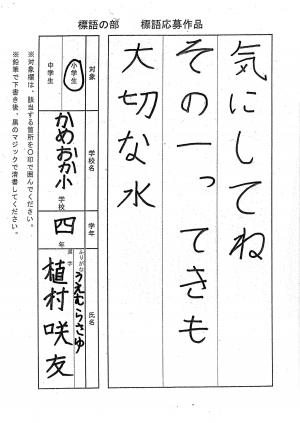 標語の部　標語応募作品
気にしてね
その一ってきも
大切な水
対象
小学生
中学生
学校名
かめおか小
学校
学年
四
年
氏名
ふりがな
うえむらさゆ
漢字
植村咲友
※対象欄は、該当する箇所を〇印で囲んでください。
※鉛筆で下書き後、黒のマジックで清書してください。